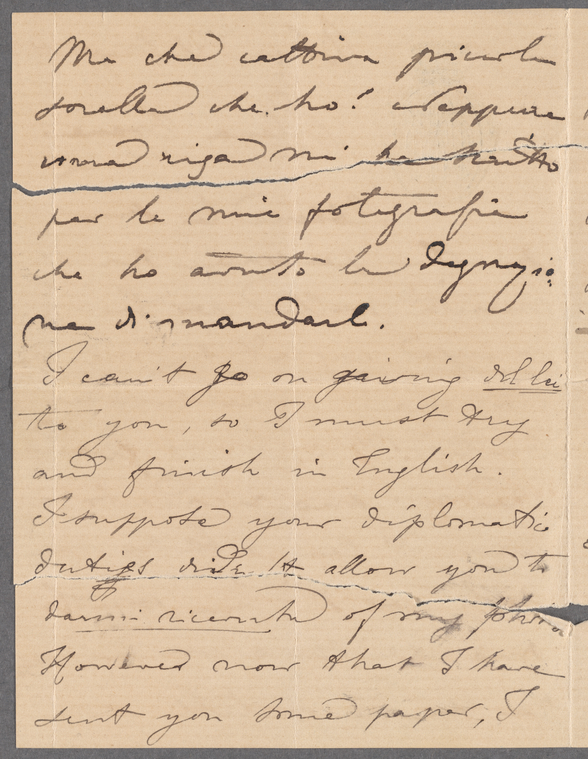 Ma che cattiva piccola
sorella che ho! Neppure
una riga mi ha scritto
per le mie fotografie
che ho avuto la degnazio-
ne di mandarle.
I can't go on giving del lei
to you, so I must try
and finish in English.
I suppose your diplomatic
duties didn't allow you to
darmi ricevuta of my photos
However now that I have
sent you some paper, I